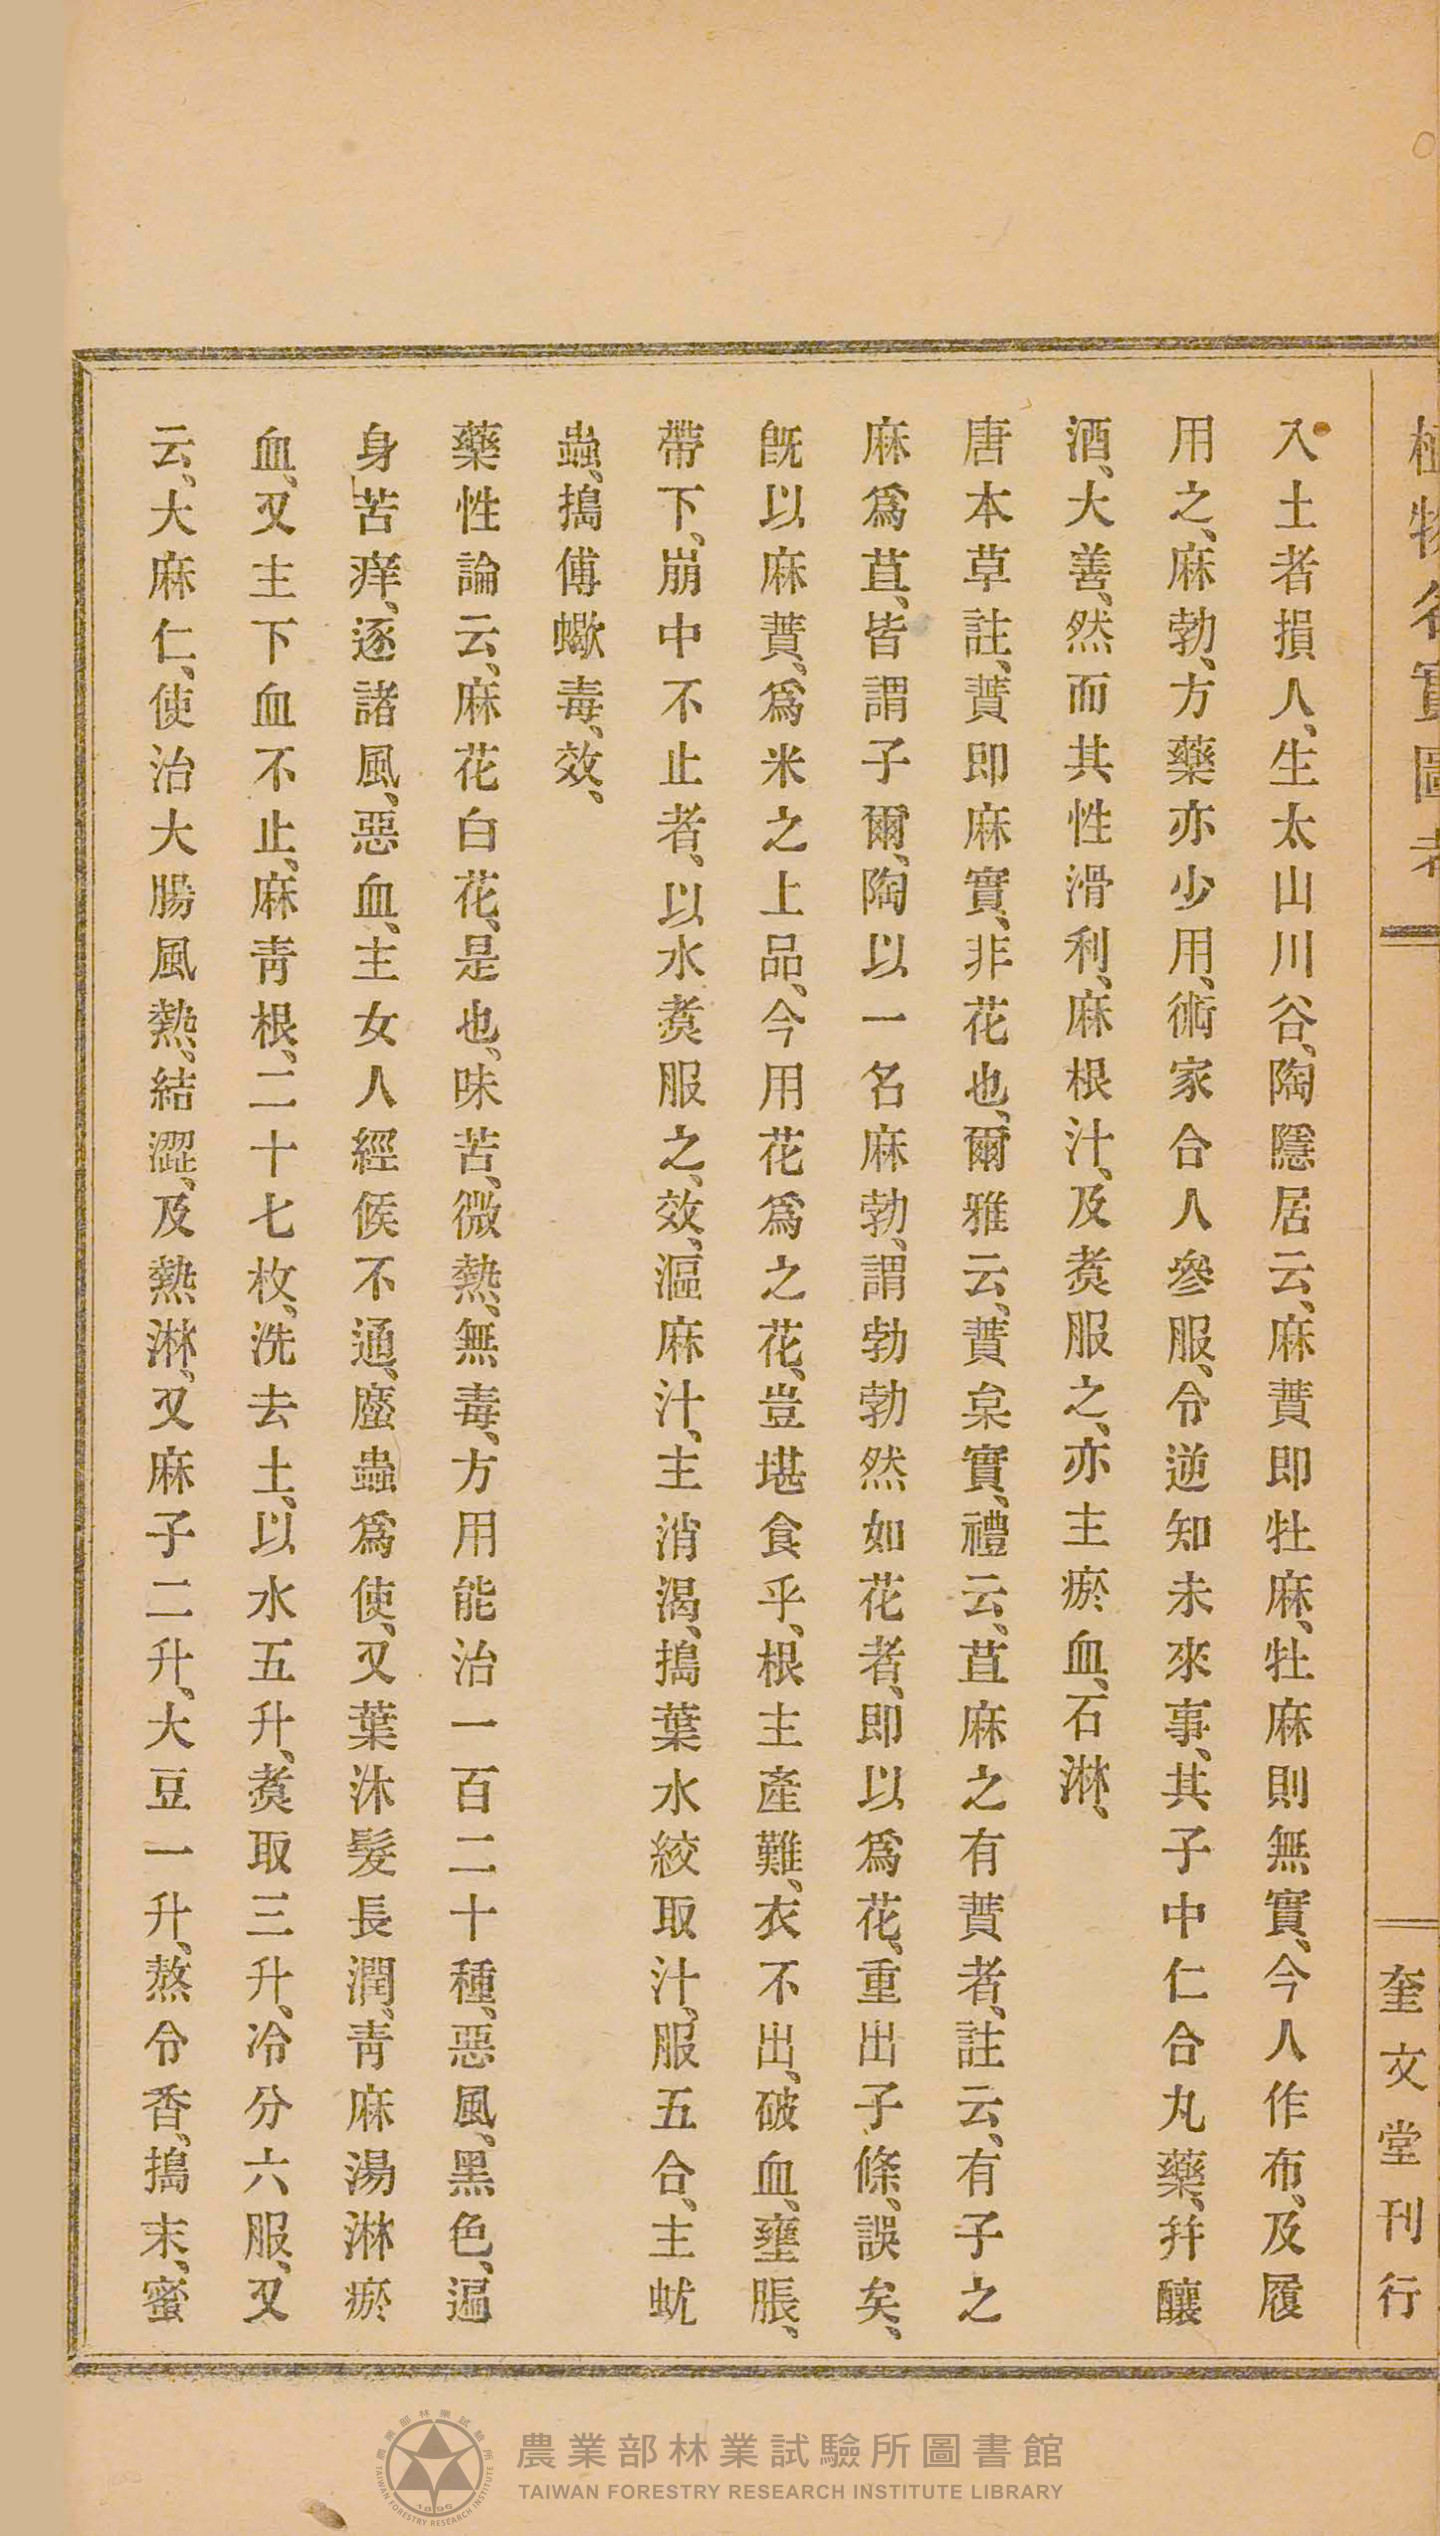 植物名實圖考
奎文堂刊行
入土者損人、生太山川谷、陶隱居云、麻蕡即牡麻、牡麻則無實、今人作布、及履
用之、麻勃、方藥亦少用、術家合人參服、令逆知未來事、其子中仁合丸藥、幷釀
酒、大善、然而其性滑利、麻根汁、及煑服之、亦主瘀血、石淋、
唐本草註、蕡即麻實、非花也、爾雅云、蕡枲實、禮云、苴麻之有蕡者、註云、有子之
麻爲苴、皆謂子爾、陶以一名麻勃、謂勃勃然如花者、即以爲花、重出子條、誤矣、
旣以麻蕡、爲米之上品、今用花爲之花、豈堪食乎、根主產難、衣不出、破血、壅脹、
帶下、崩中不止者、以水煑服之、效、漚麻汁、主消渴、搗葉水絞取汁、服五合、主蚘
蟲、搗傅蠍毒、效、
藥性論云、麻花白花、是也、味苦、微熱、無毒、方用能治一百二十種、惡風、黑色、遍
身苦痒、逐諸風、惡血、主女人經候不通、䗪蟲爲使、又葉沐髮長潤、靑麻湯淋瘀
血、又主下血不止、麻靑根、二十七枚、洗去土、以水五升、煑取三升、冷分六服、又
云、大麻仁、使治大腸風熱、結澀、及熱淋、又麻子二升、大豆一升、熬令香、搗末、蜜
農業部林業試驗所圖書館
TAIWAN FORESTRY RESEARCH INSTITUTE LIBRARY
農業部林業試驗所
TAIWAN FORESTRY RESEARCH INSTITUTE
1896